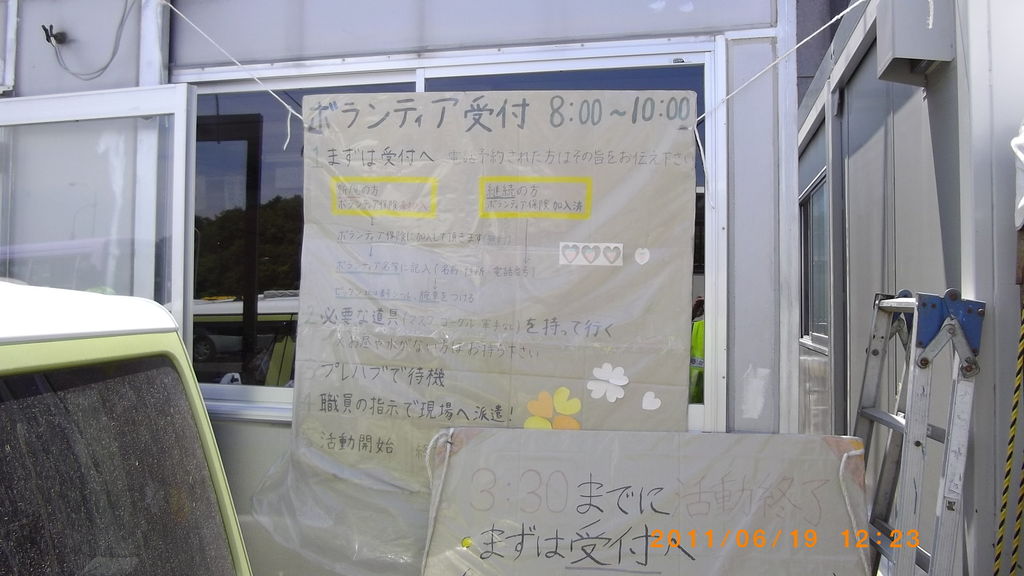 ボランティア受付 8:00~10:00
1 まずは受付へ 電話予約された方はその旨をお伝え下さい
新規の方
ボランティア保険未加入
継続の方
ボランティア保険加入済
ボランティア保険に加入して頂きます(無料)
ボランティア名簿に記入(名前・住所・電話番号)
腕章をつける
2 必要な道具(マスク・ゴーグル・軍手など)を持って行く
※お昼や水がない方はお持ち下さい
3 プレハブで待機
4 職員の指示で現場へ派遣!
活動開始
3:30までに活動終了
・まずは受付へ
2011/06/19 12:23